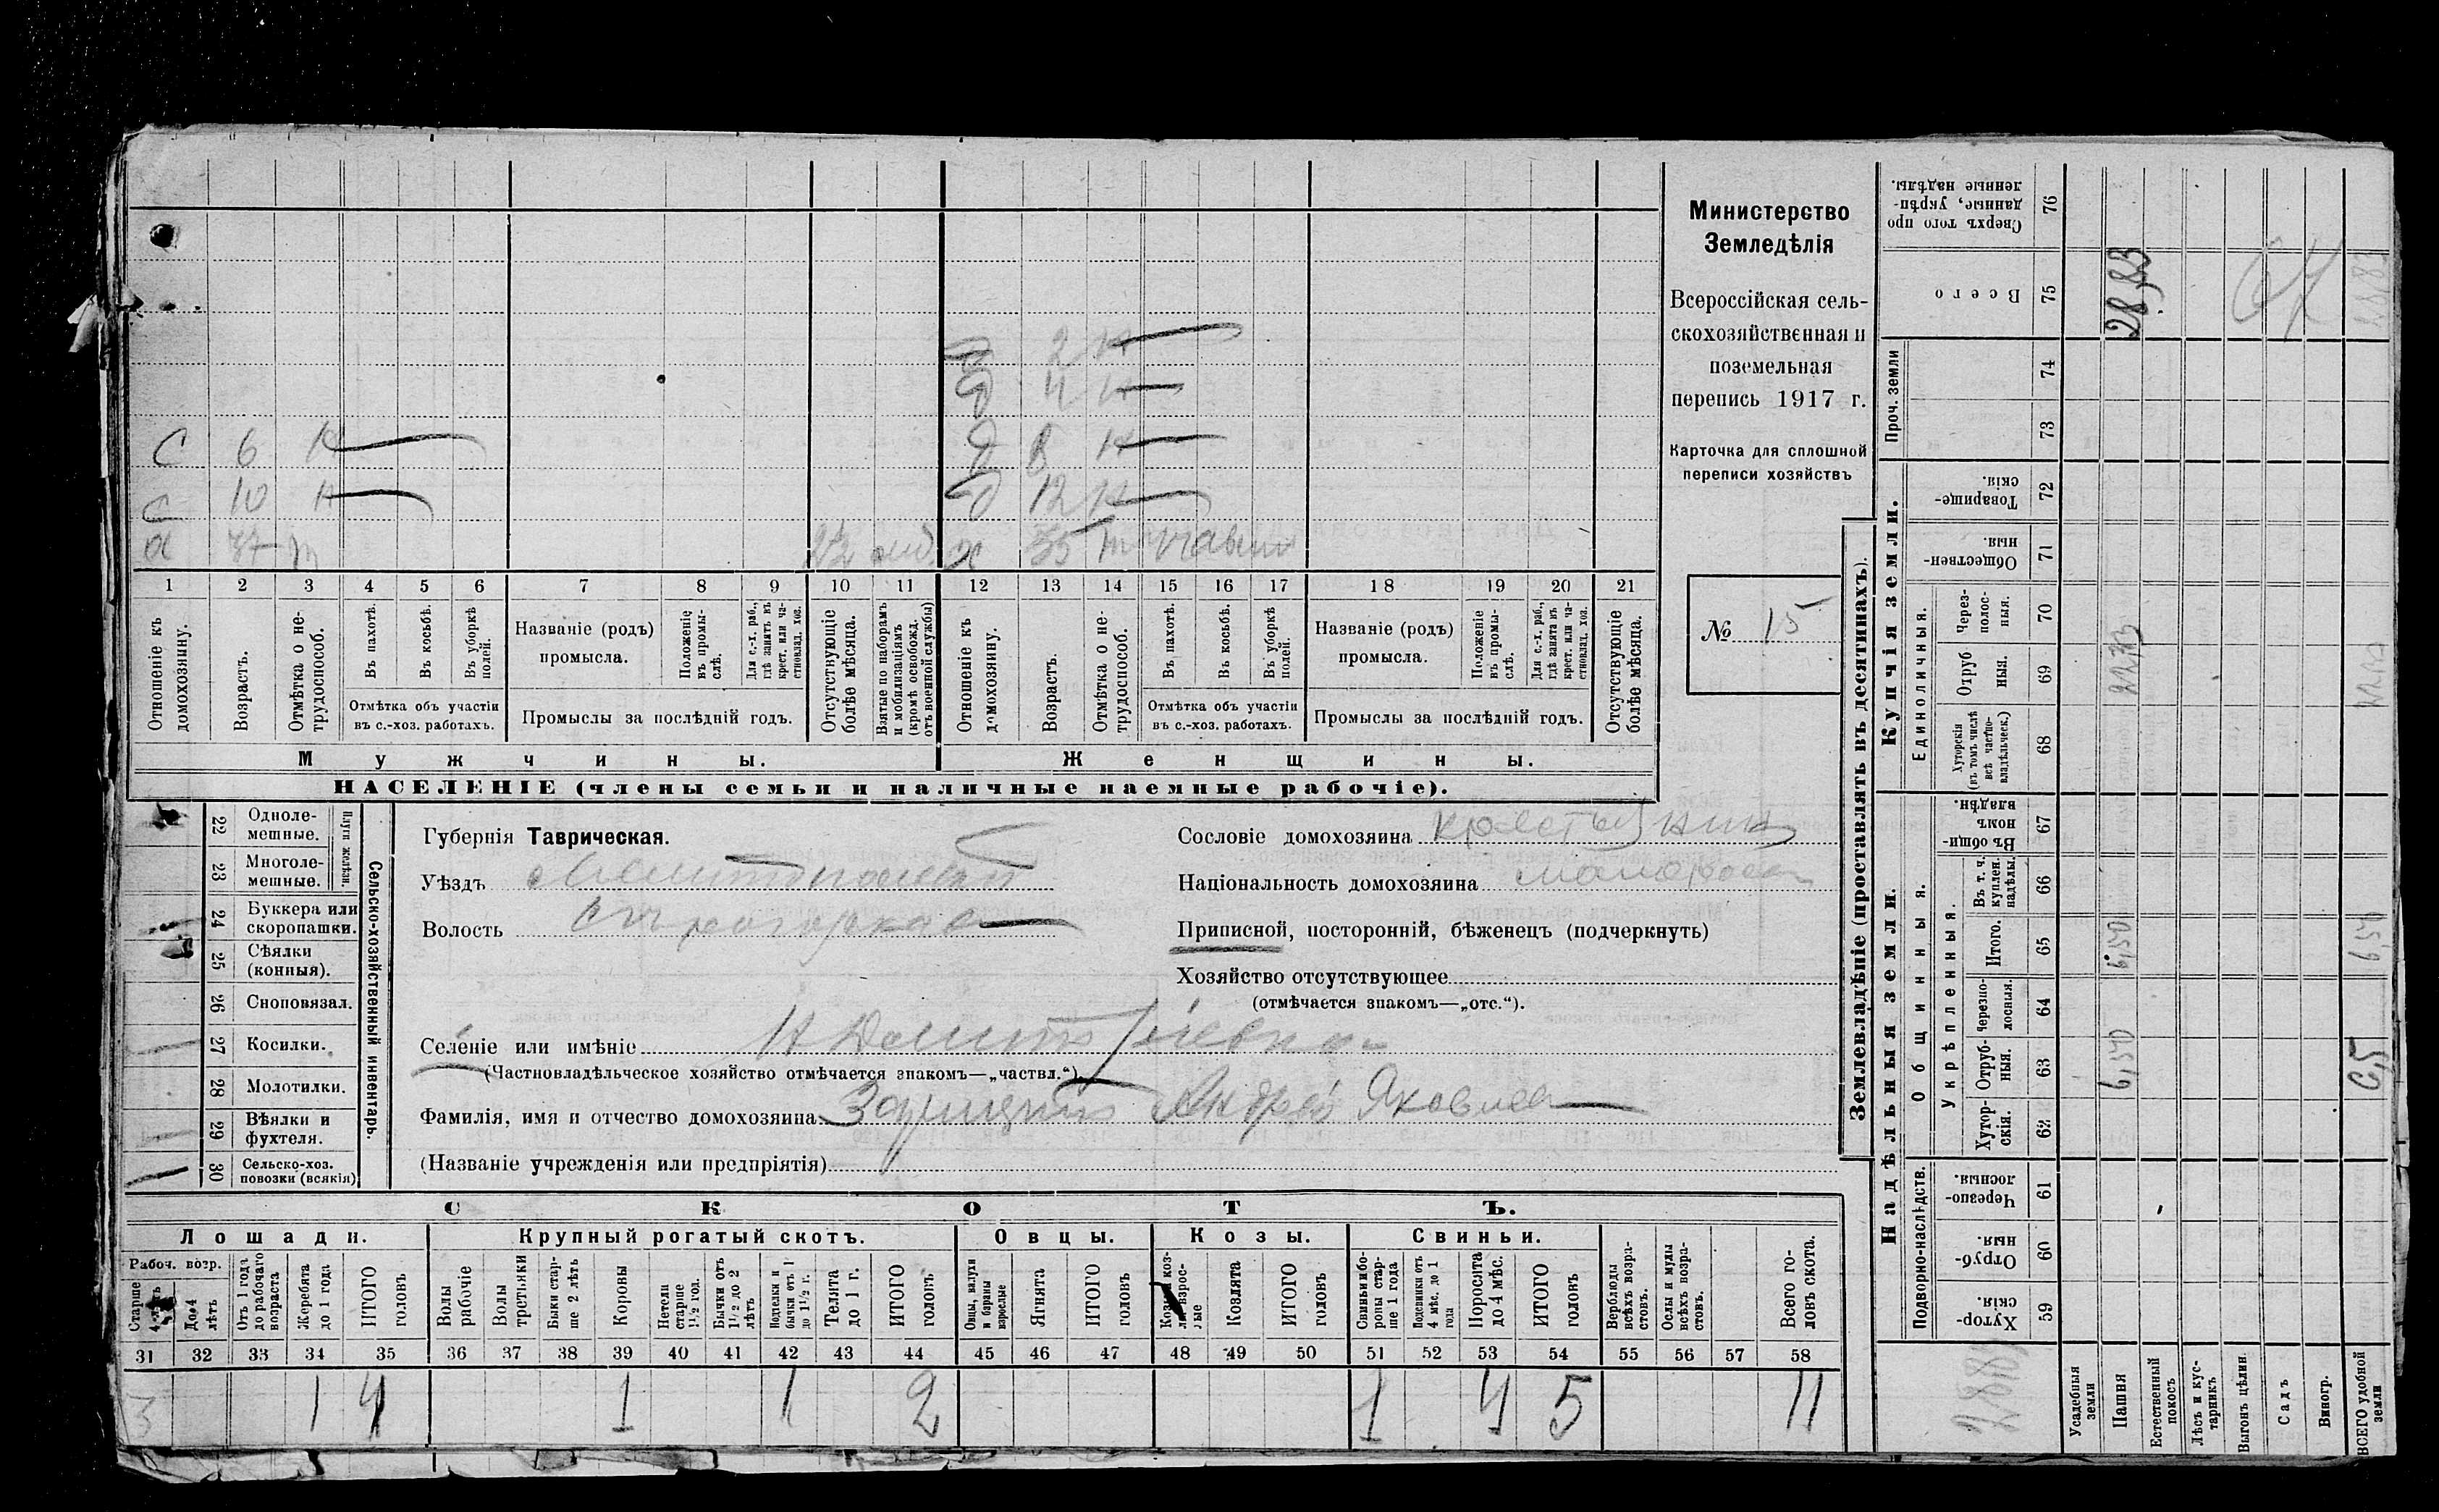 Министерство
Земледѣлія
Всероссійская сель-
скохозяйственная и
поземельная
перепись 1917 г.
Карточка для сплошной
переписи хозяйствъ
№ 15
д 2 н
д 4 н
С 6 н д 8 н
С 10 н д 12 н
х 37 х 35
1 2 3 4 5 6 7 8 9 10 11 12 13 14 15 16 17 18 19 20 21
Отношеніе къ домохозяину.
Возрастъ.
Отмѣтка о не-трудоспособ.
Въ пахотѣ.
Въ косьбѣ.
Въ уборкѣ полей.
Отмѣтка объ участіи
въ с.-хоз. работахъ.
Названіе (родъ)
промысла.
Положеніе въ промы-слѣ.
Для с.-х. раб., гдѣ занятъ въ крест. или ча-стновлад. хоз.
Промыслы за послѣдній годъ.
Отсутствующіе болѣе мѣсяца.
Взятые по наборамъ и мобилизаціямъ (кромѣ освобожд. отъ военной службы)
Отношеніе къ домохозяину.
Возрастъ.
Отмѣтка о не-трудоспособ.
Въ пахотѣ.
Въ косьбѣ.
Въ уборкѣ полей.
Отмѣтка объ участіи
въ с.-хоз. работахъ.
Названіе (родъ)
промысла.
Положеніе въ промы-слѣ.
Для с.-х. раб., гдѣ занята въ крест. или ча-стновлад. хоз.
Промыслы за послѣдній годъ.
Отсутствующіе болѣе мѣсяца.
Мужчины. Женщины.
НАСЕЛЕНІЕ (члены семьи и наличные наемные рабочіе).
Сельско-хозяйственный инвентарь.
Плуги желѣзн.
22 Одноле-мешные.
23 Многоле-мешные.
24 Буккера или скоропашки.
25 Сѣялки (конныя).
26 Сноповязал.
27 Косилки.
28 Молотилки.
29 Вѣялки и фухтеля.
30 Сельско-хоз. повозки (всякія)
Губернія Таврическая.
Уѣздъ Мелитопольскій
Волость
Сословіе домохозяина крестьянин
Національность домохозяина малоросс
Приписной, посторонній, бѣженецъ (подчеркнуть)
Хозяйство отсутствующее
(отмѣчается знакомъ—„отс.“).
Селеніе или имѣніе Н Дмитріевка
(Частновладѣльческое хозяйство отмѣчается знакомъ—„частвл.“)
Фамилія, имя и отчество домохозяина Андрей Яковлев
(Названіе учрежденія или предпріятія)
СКОТЪ.
Лошади. Крупный рогатый скотъ. Овцы. Козы. Свиньи.
Рабоч. возр.
Старше 4 лѣтъ
До 4 лѣтъ
Отъ 1 года до рабочаго возраста
Жеребята до 1 года
ИТОГО головъ
Волы рабочіе
Волы третьяки
Быки стар-ше 2 лѣтъ
Коровы
Нетели старше 1½ год.
Бычки отъ 1½ до 2 лѣтъ
Подтелки и бычки отъ 1 до 1½ г.
Телята до 1 г.
ИТОГО головъ
Овцы, валухи и бараны взрослые
Ягнята
ИТОГО головъ
Козлята
ИТОГО головъ
Свиньи и бо-ровы стар-ше 1 года
Подсвинки отъ 4 мѣс. до 1 года
Поросята до 4 мѣс.
ИТОГО головъ
Верблюды всѣхъ возра-стовъ.
Ослы и мулы всѣхъ возра-стовъ.
Всего го-ловъ скота.
31 32 33 34 35 36 37 38 39 40 41 42 43 44 45 46 47 48 49 50 51 52 53 54 55 56 57 58
3 1 4 1 1 2 1 4 5 11
Землевладѣніе (проставлять въ десятинахъ).
Надѣльныя земли. Купчія земли. Проч. земли
Подворно-наслѣдств. Общинныя. Единоличныя.
Укрѣпленныя.
Хутор-скія. 59
Отруб-ныя. 60
Черезпо-лосныя. 61
Хутор-скія. 62
Отруб-ныя. 63
Черезпо-лосныя. 64
Итого. 65
Въ т. ч. куплен. надѣлы. 66
Въ общи-номъ владѣн. 67
Хуторскія (въ томъ числѣ всѣ частно-владѣльческ.) 68
Отруб ныя. 69
Черезполос-ныя. 70
Обществен-ныя. 71
Товарище-скія. 72
73
74
Всего 75
Сверхъ того про данные, укрѣп-ленные надѣлы. 76
Усадебныя земли
Пашня 6,50 6,50 28,83
Естественный покосъ
Лѣсъ и кус-тарникъ
Выгонъ цѣлин.
Садъ
Виногр.
ВСЕГО удобной земли 6,5 6,50